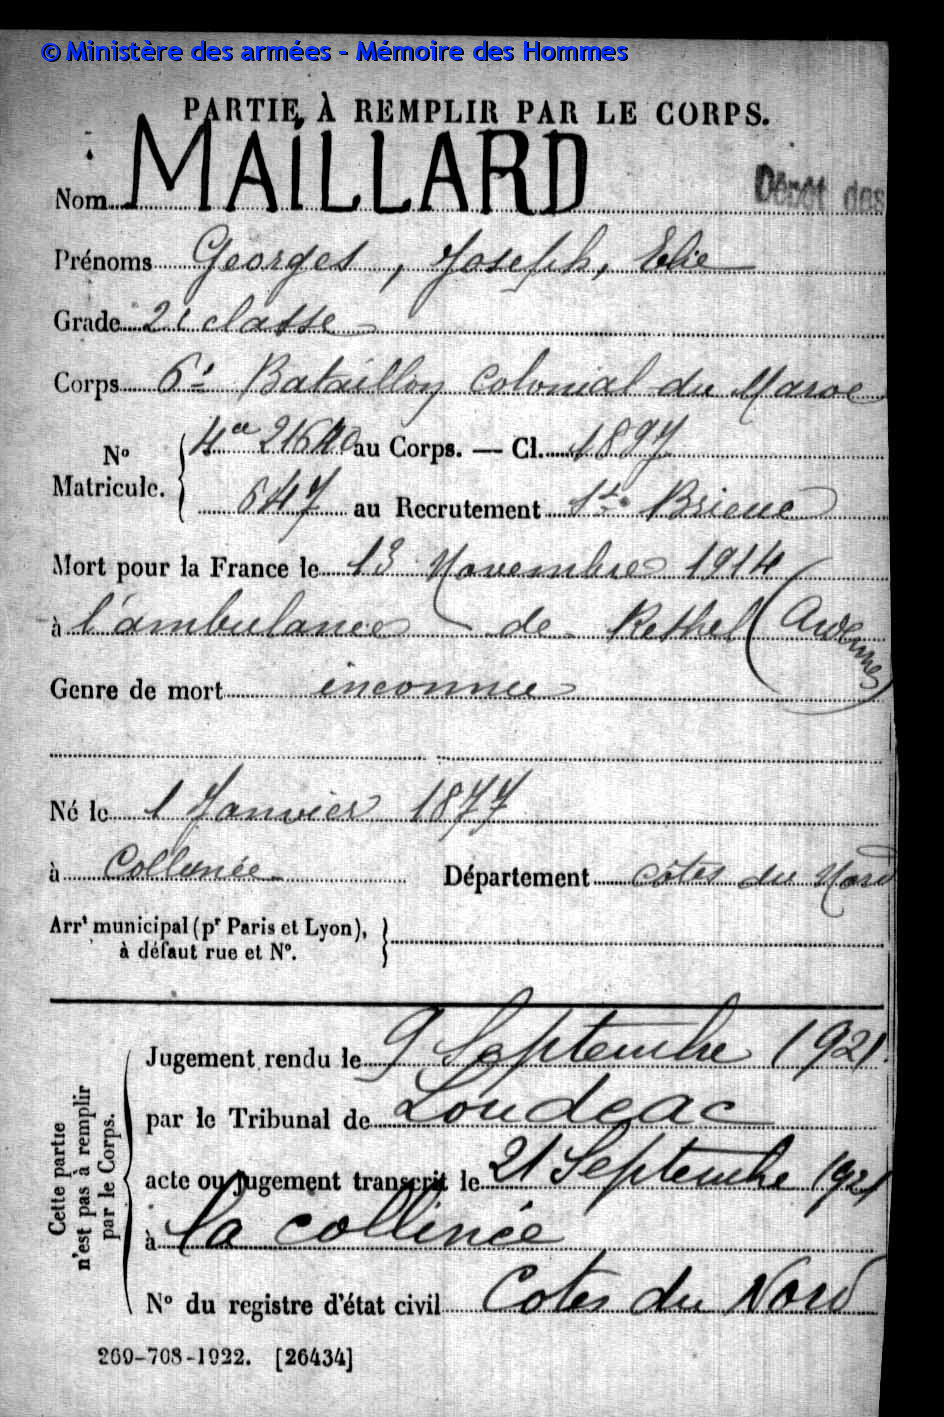 © Ministère des armées - Mémoire des Hommes
PARTIE À REMPLIR PAR LE CORPS.
Nom MAILLARD
Dépôt des
Prénoms Georges, Joseph, Elie
Grade 2e classe
Corps 6e Bataillon Colonial du Maroc
No Matricule. au Corps. — Cl. 1897
647 au Recrutement St Brieuc
Mort pour la France le 13 Novembre 1914
à l'ambulance de Rethel (Ardennes)
Genre de mort inconnue
Né le 1 Janvier 1877
à Collinée Département Côtes du Nord
Arrt municipal (pr Paris et Lyon),
à défaut rue et No.
Cette partie
n'est pas à remplir
par le Corps.
Jugement rendu le 9 Septembre 1921
par le Tribunal de Loudeac
acte ou jugement transcrit le 21 Septembre 1921
à la collinée
No du registre d'état civil Cotes du Nord
269-708-1922. [26434]